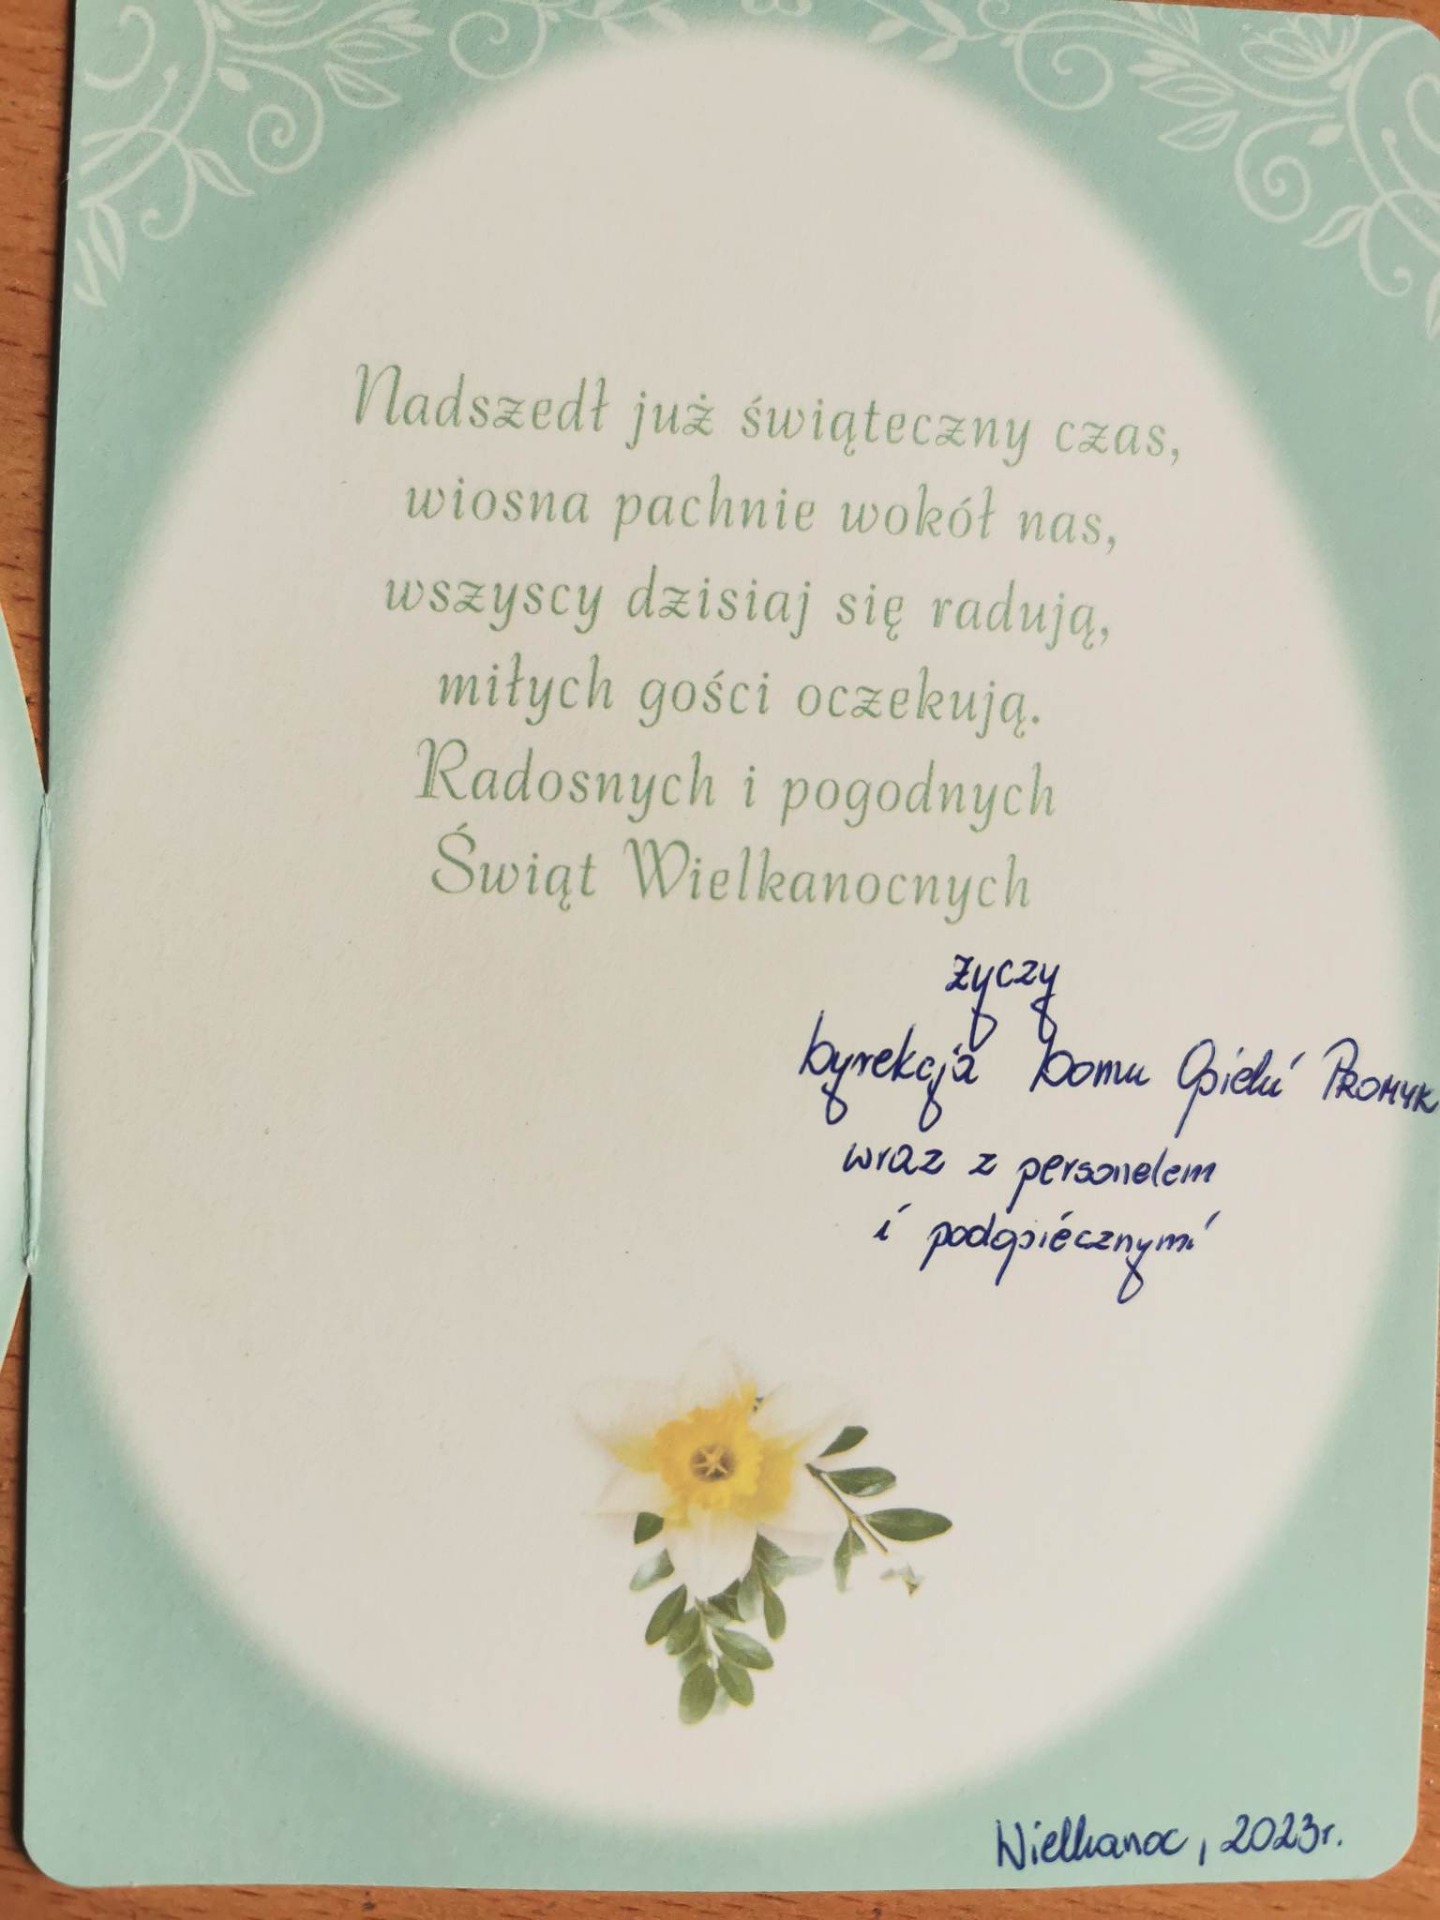 Nadszedł już świąteczny czas,
wiosna pachnie wokół nas,
wszyscy dzisiaj się radują,
miłych gości oczekują.
Radosnych i pogodnych
Świąt Wielkanocnych
życzy
Dyrekcja Domu Opieki PROMYK
wraz z personelem
i podopiecznymi
Wielkanoc, 2023r.